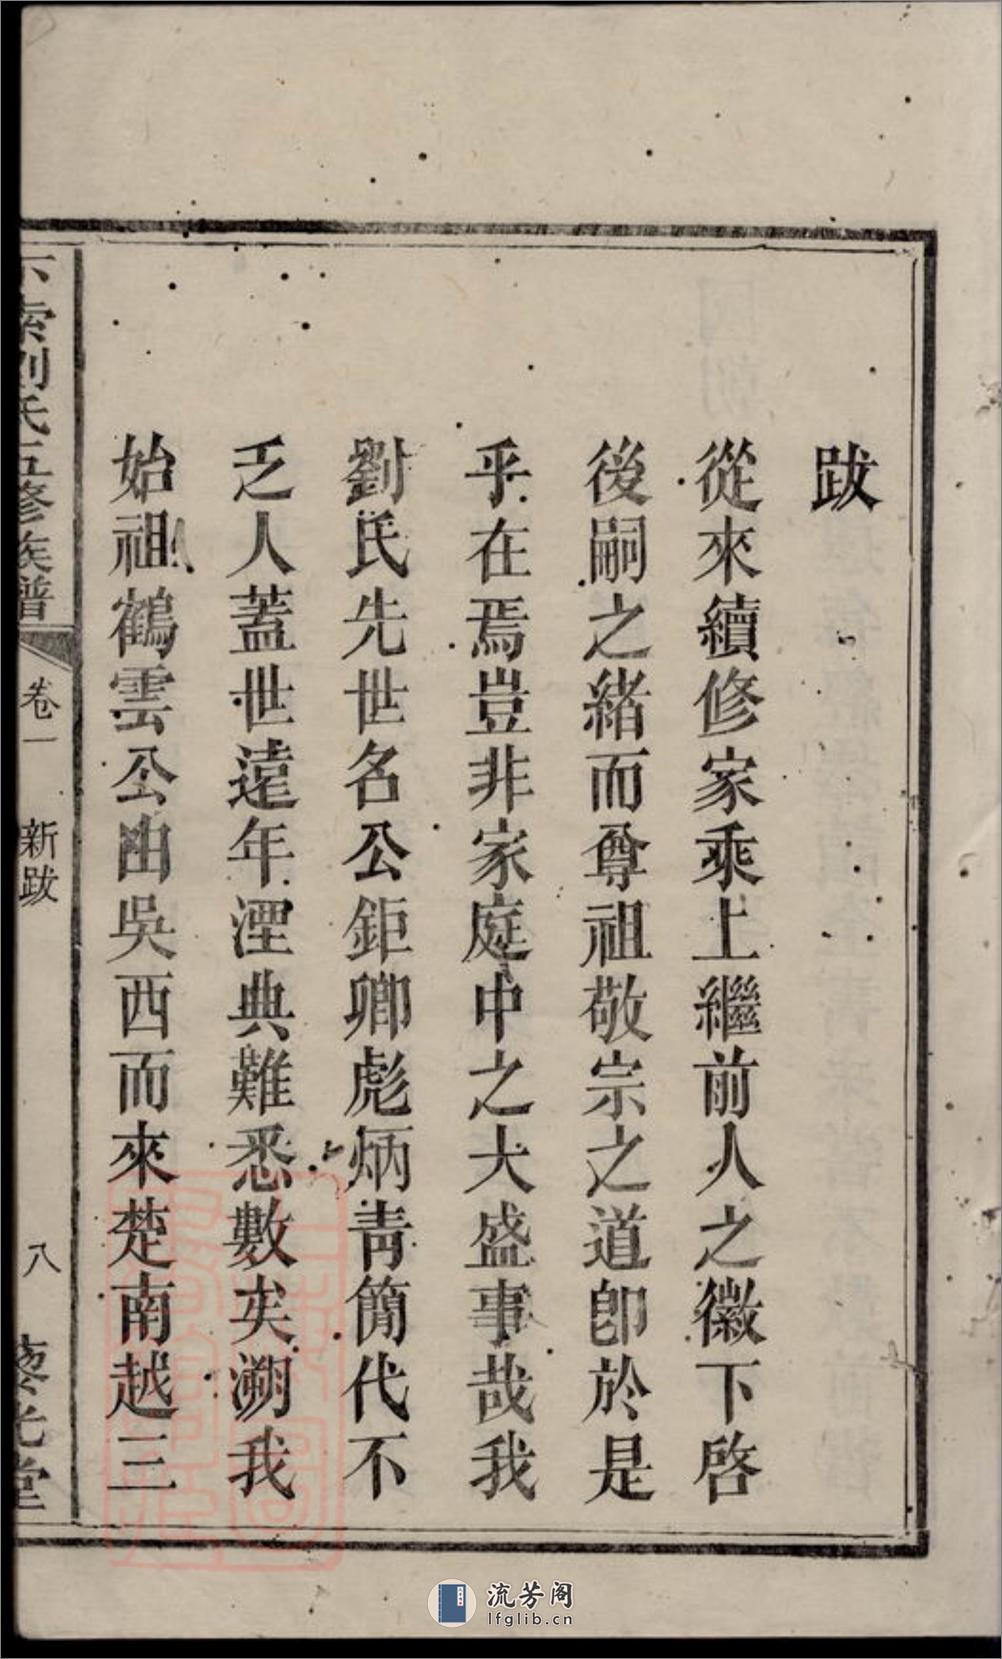 跋
從來續修家乘上繼前人之徽下啓
後嗣之緒而尊祖敬宗之道卽於是
乎在焉豈非家庭中之大盛事哉我
劉氏先世名公鉅卿彪炳靑簡代不
乏人蓋世遠年湮典難悉數矣溯我
始祖鶴雲公由吳西而來楚南越三
索劉氏五修族譜
卷一
新跋
八
堂
流芳阁
lfglib.cn